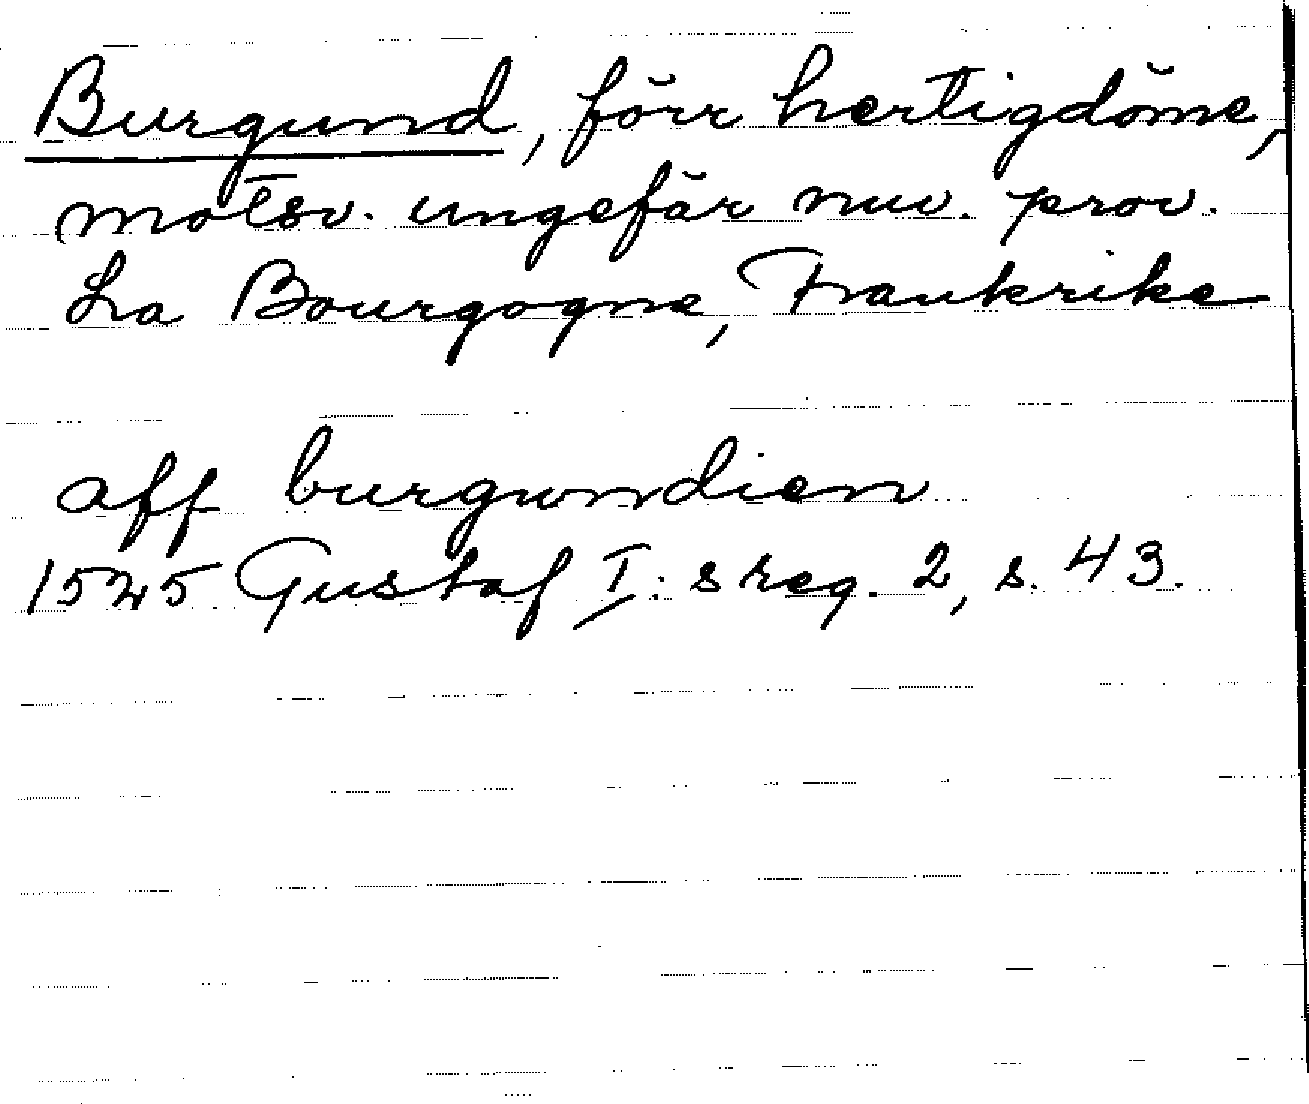 Burgund, förr hertigdöme,
motsv. ungefär nuv. prov.
La Bourgogne, Frankrike
aff burgwndien
1525 Gustaf I:s reg. 2, s. 43.